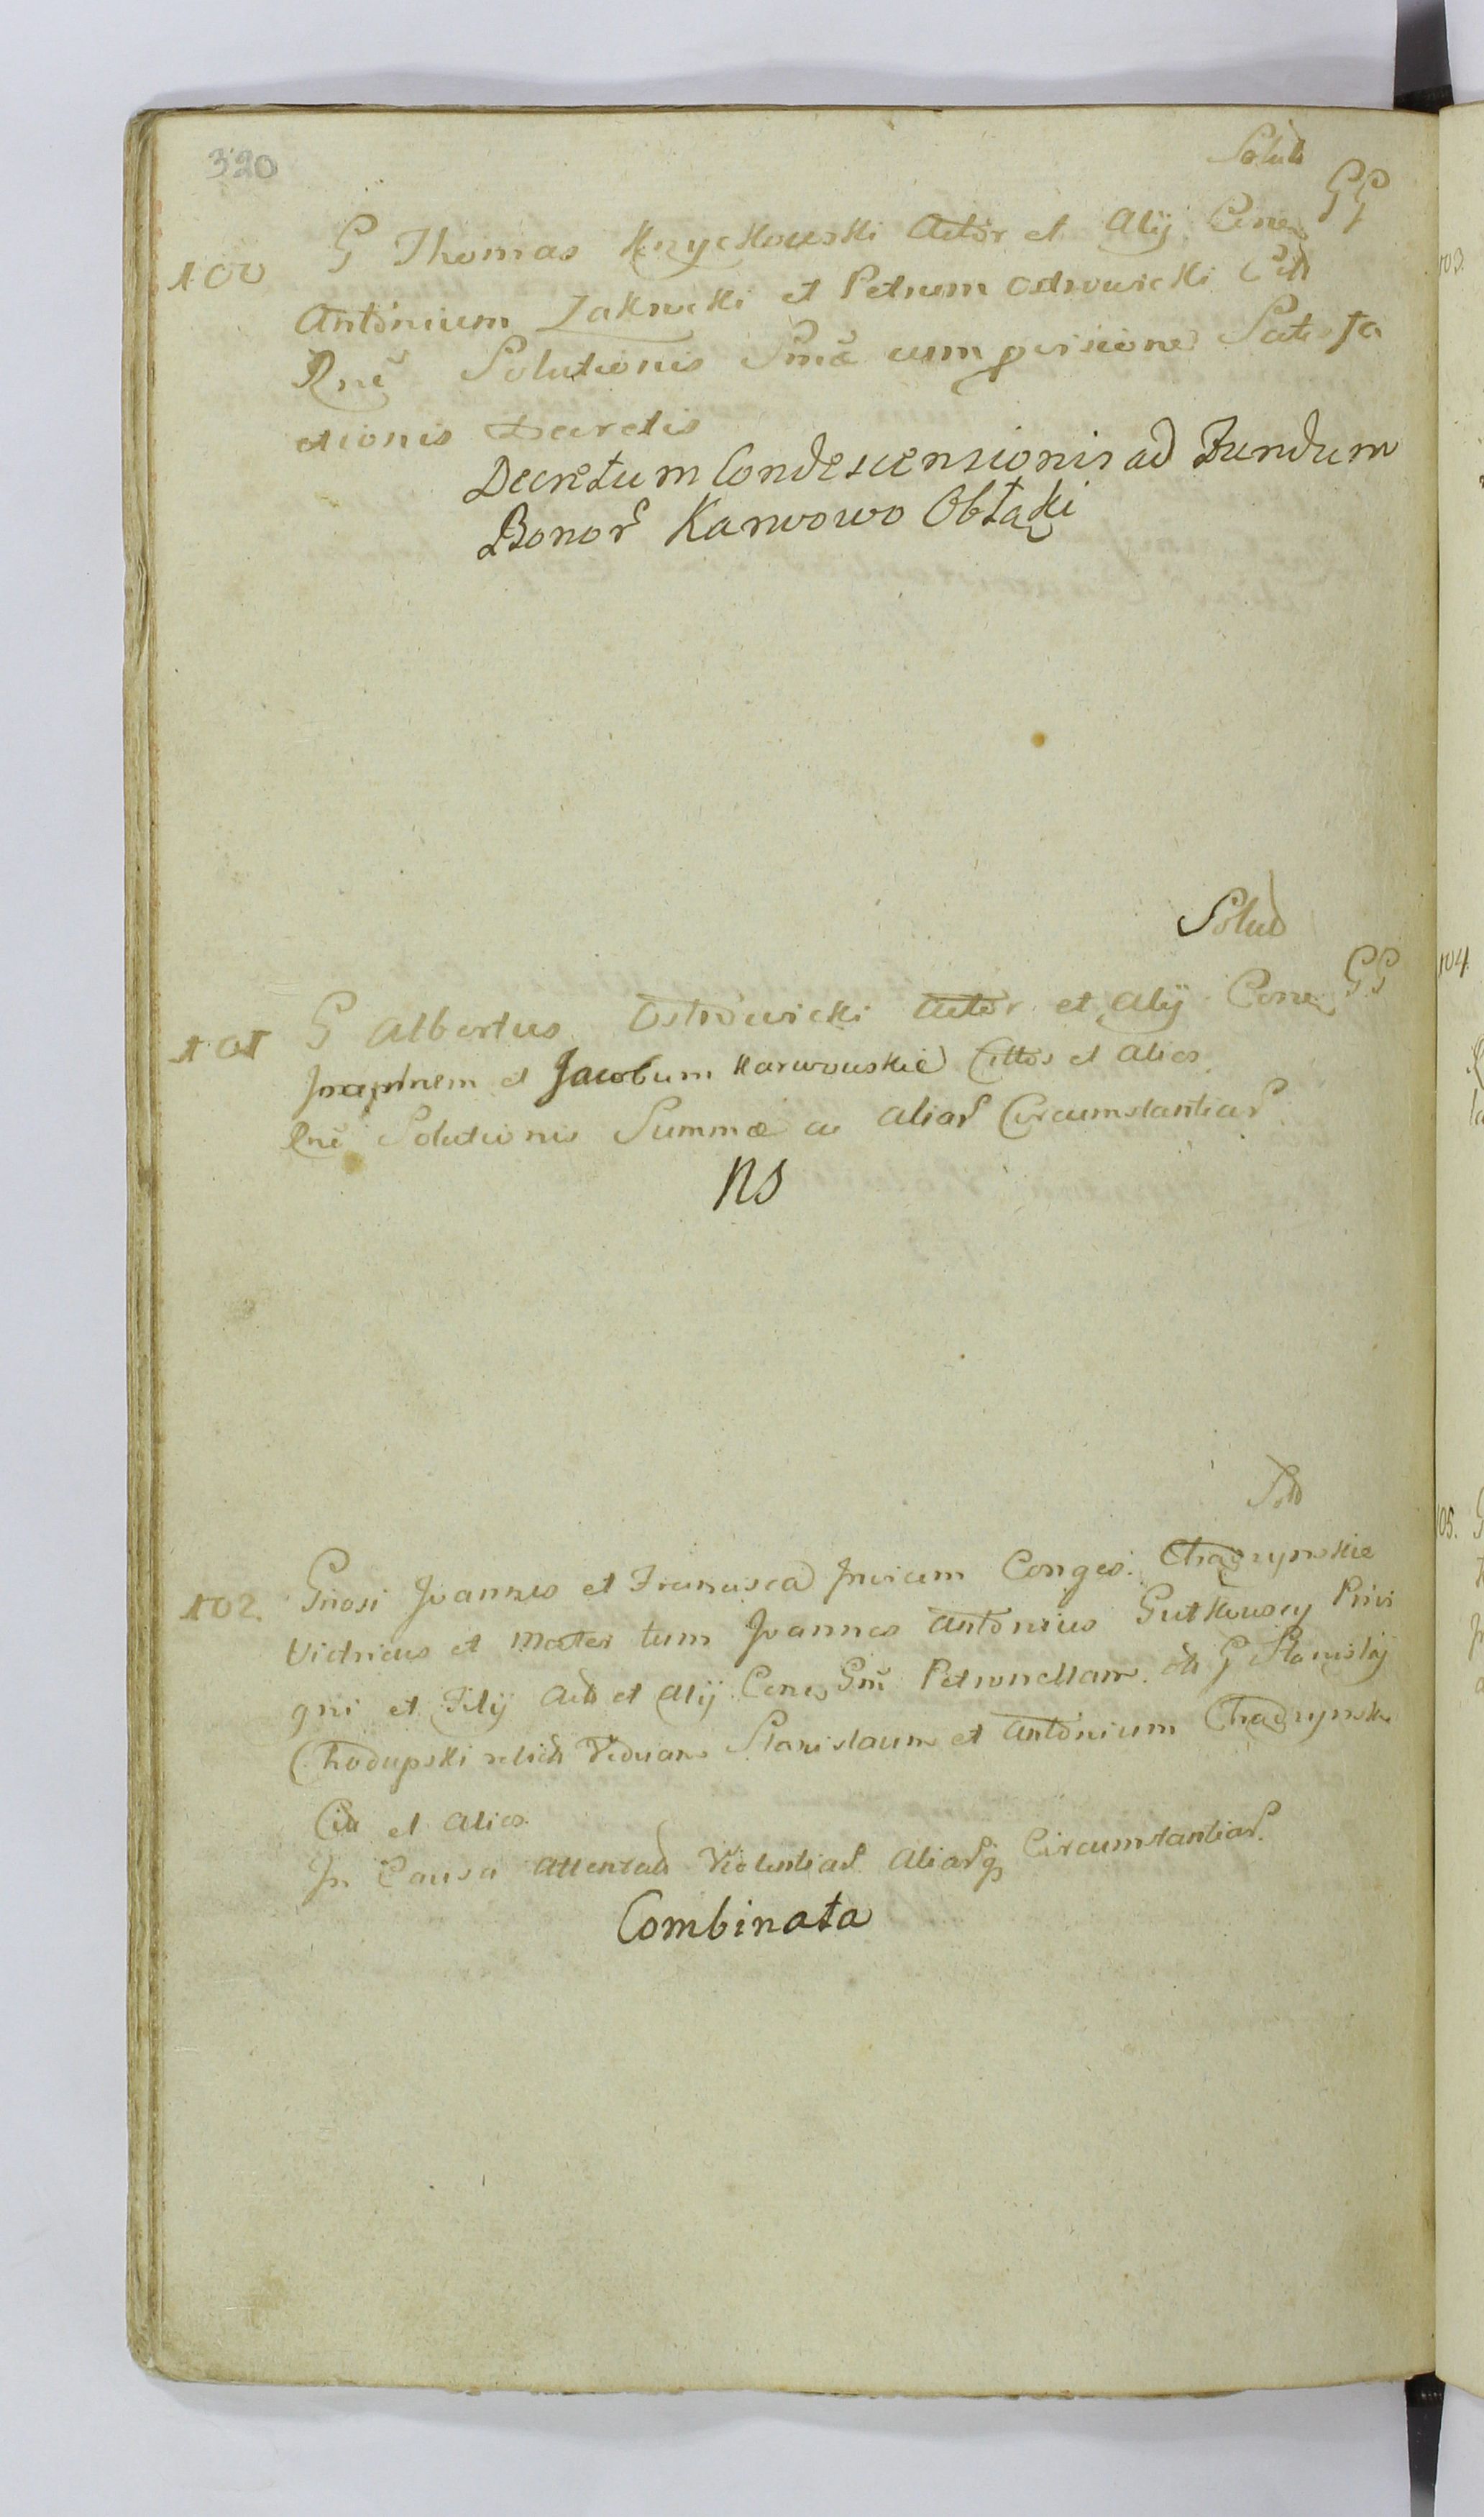 320
Solut
100 G Thomas Krzyckowski Actor et Alij Cones GG
Antonium Zakrzeski et Petrum Ostrowicki Citt
Rne Solutionis Smæ cum provisione Satisfa
ctionis Decretis
Decretum Condescensionis ad Fundum
Bonor Karwowo Obłaki
Solut
101 G Albertus Ostrowicki Actor et Alij Cones GG
et Jacobum Karwowskie Cittos et Alios
Rne Solutionis Summæ ac aliar Circumstantiar
NS
Solt
102. Gnosi Joannes et Francisca Invicem Conges. Chądzynskie
Victricus et Mater tum Joannes Antonius Gutkowscy Privi
gni et Filij Act et Alij Cones Gm Petronellam. G Stanislaj
Chodupski relict Viduam Stanislaum et Antonium Chądzynskie
Citt et Alios.
In Causa Attentat Violentiar Aliarq Circumstantiar.
Combinata
104
105.